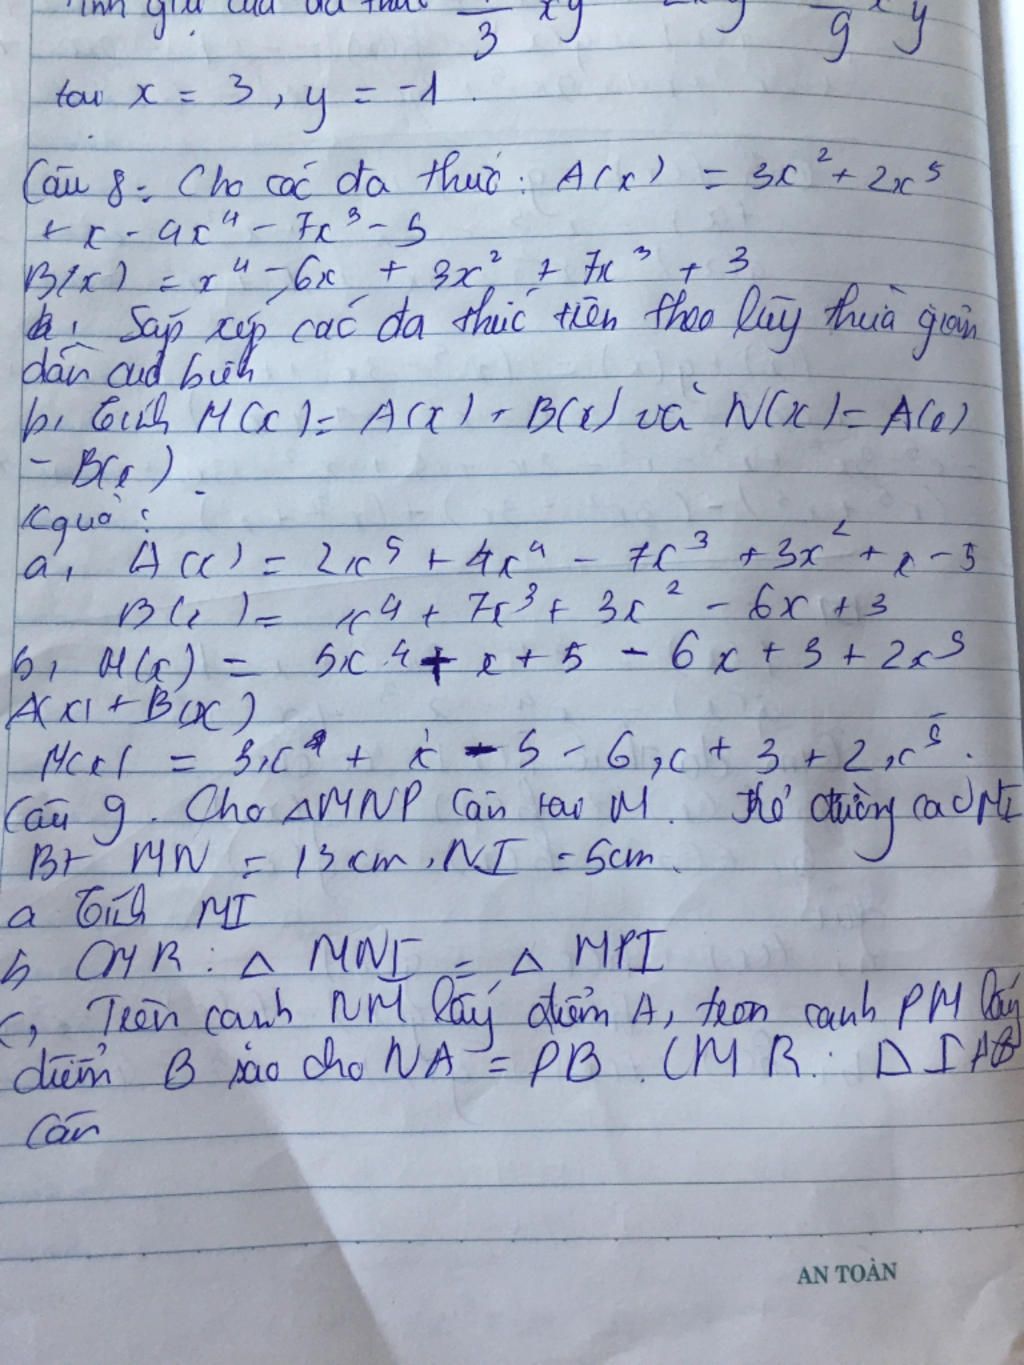 Tính giá của đa thức 1/3 xy xy 9 x y
tại x = 3, y = -1.
Câu 8: Cho các đa thức: A(x) = 3x² + 2x⁵
+ x - 4x⁴ - 7x³ - 5
B(x) = x⁴ - 6x + 3x² + 7x³ + 3
a, Sắp xếp các đa thức trên theo lũy thừa giảm
dần của biến
b, Tính M(x) = A(x) + B(x) và N(x) = A(x)
- B(x).
Kquả:
a, A(x) = 2x⁵ + 4x⁴ - 7x³ + 3x² + x - 5
B(x) = x⁴ + 7x³ + 3x² - 6x + 3
b, M(x) = 5x⁴ + x + 5 - 6x + 3 + 2x⁵
A(x) + B(x)
M(x) = 3x⁴ + x - 5 - 6x + 3 + 2x⁵.
Câu 9. Cho ΔMNP cân tại M. Kẻ đường cao MI
Bt MN = 13cm, NI = 5cm.
a Tính MI
b CMR: Δ MNI = Δ MPI
c, Trên cạnh NM lấy điểm A, trên cạnh PM lấy
điểm B sao cho NA = PB. CMR: ΔIAB
cân
AN TOÀN